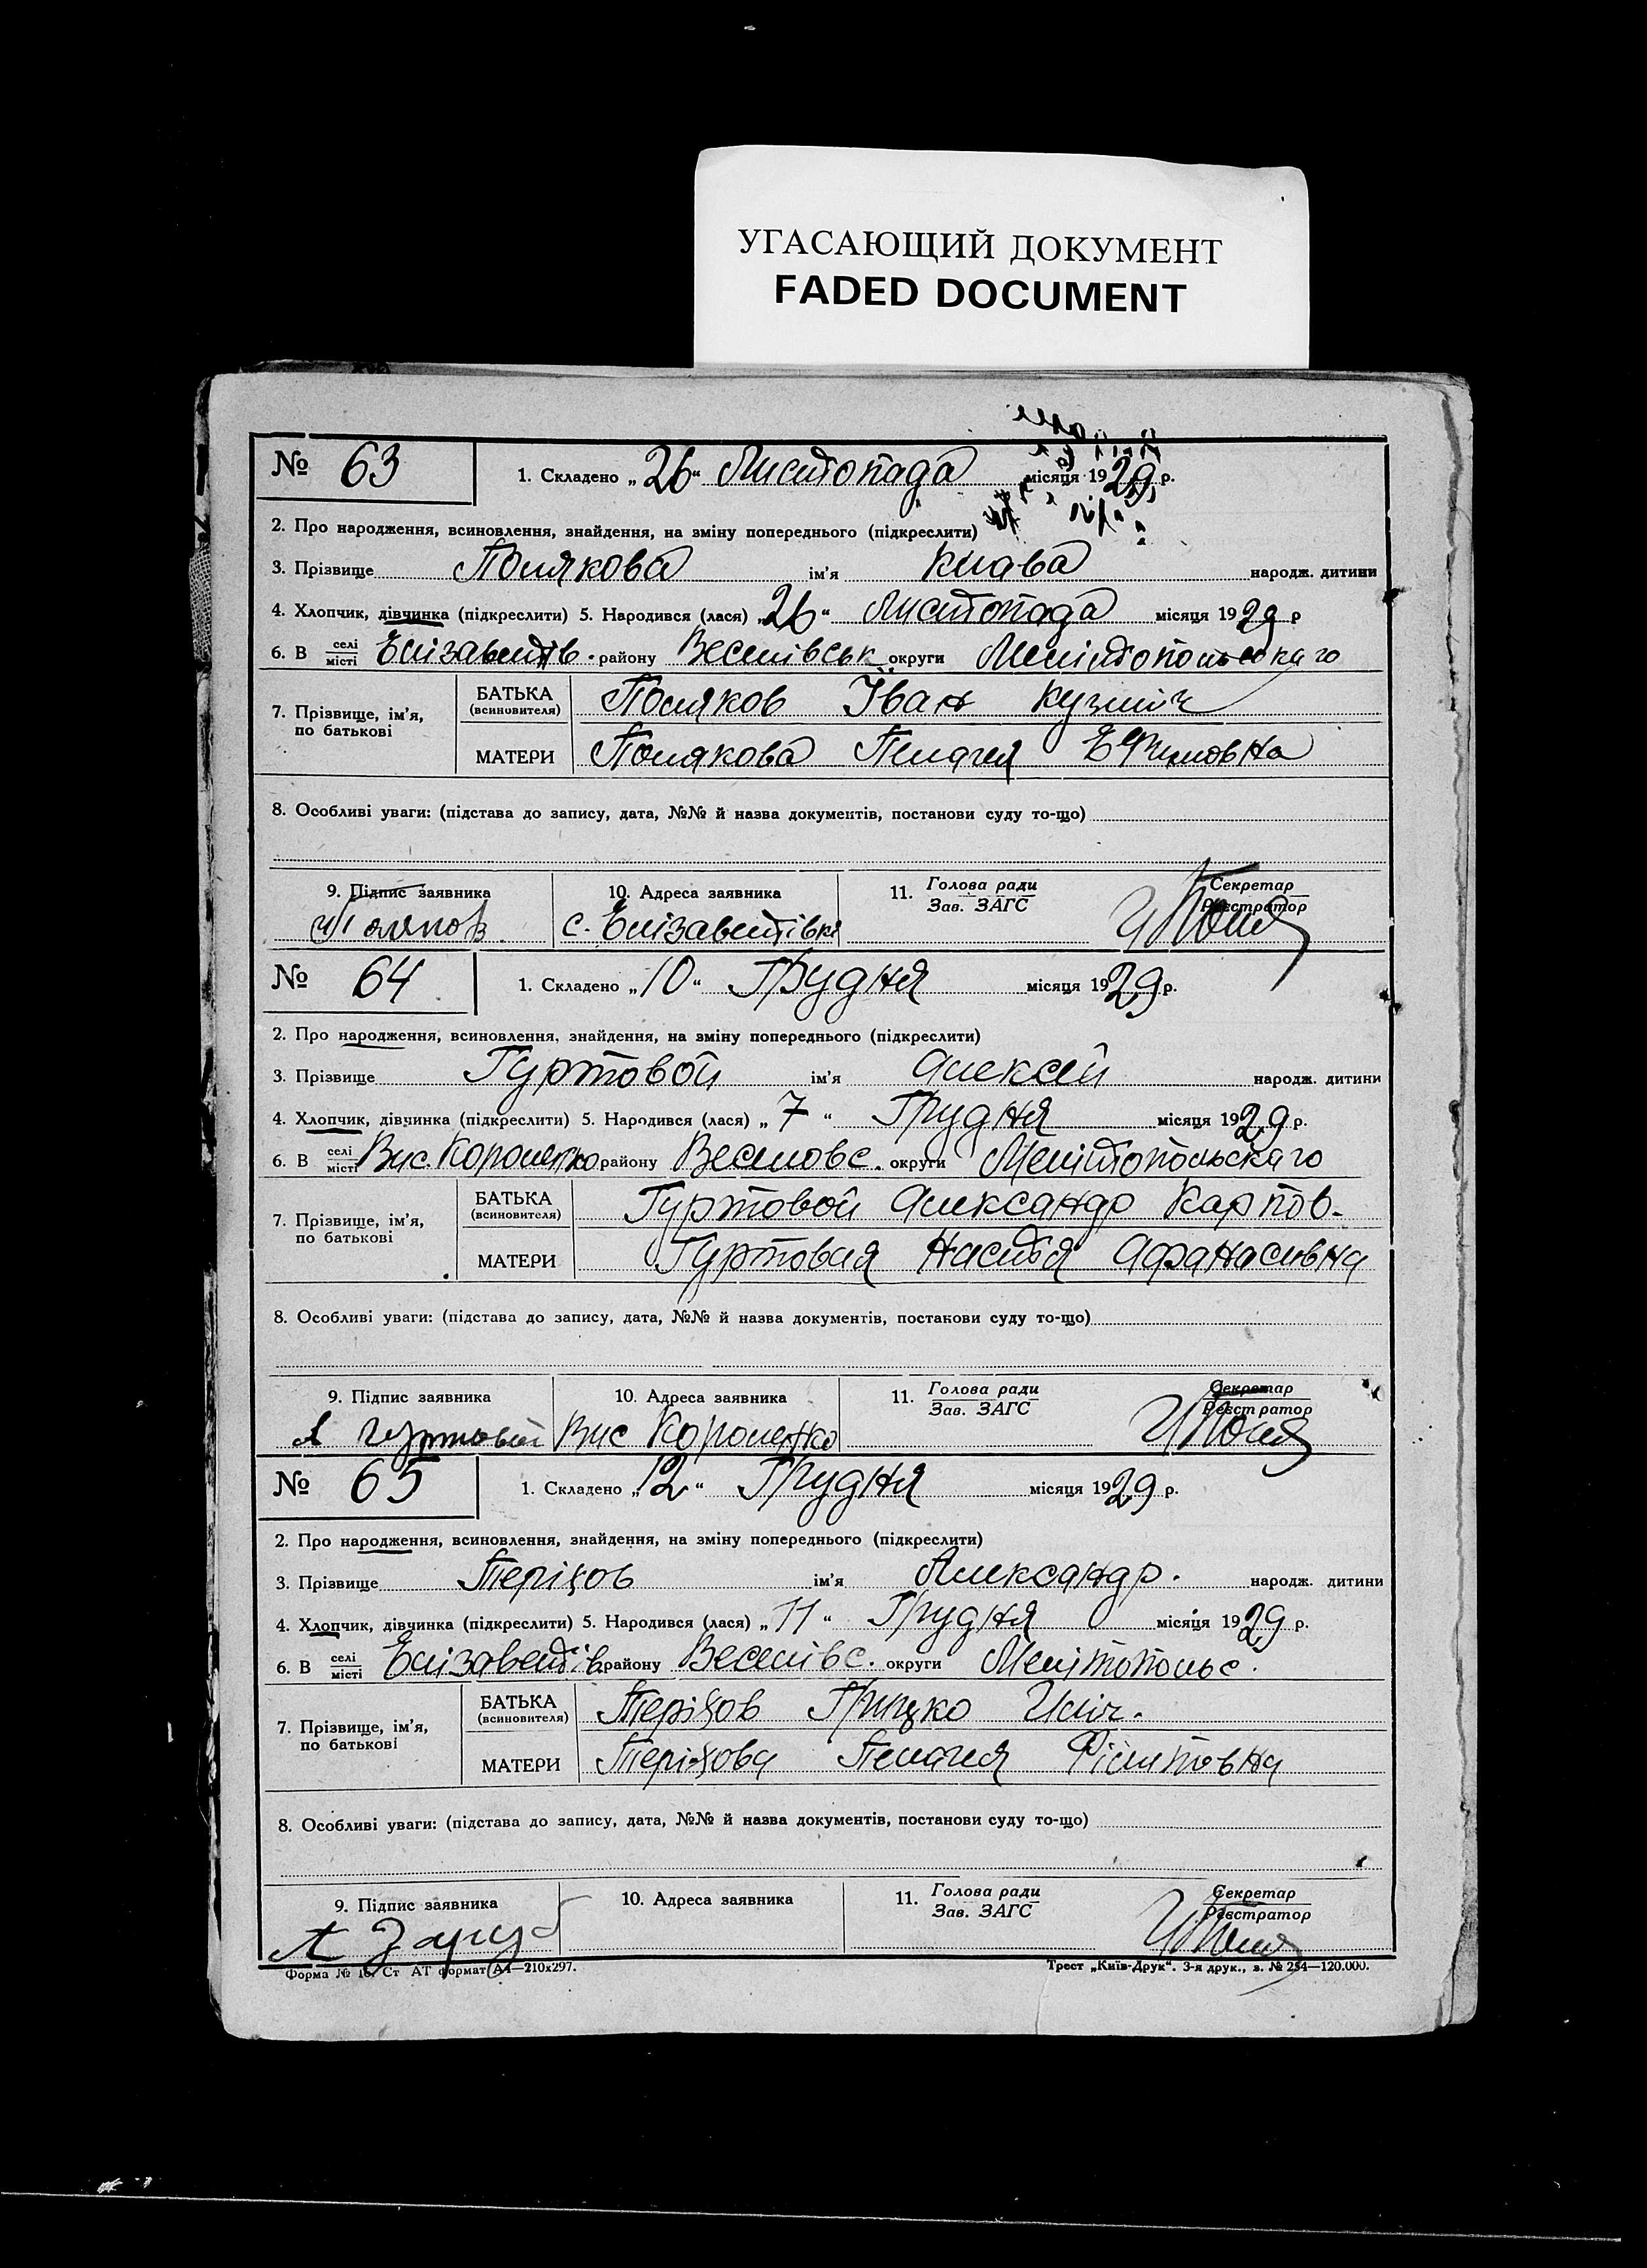 УГАСАЮЩИЙ ДОКУМЕНТ
FADED DOCUMENT
№ 63 1. Складено „26“ Листопада місяця 1929 р.
2. Про народження, всиновлення, знайдення, на зміну попереднього (підкреслити)
3. Прізвище Полякова ім'я Клава народж. дитини
4. Хлопчик, дівчинка (підкреслити) 5. Народився (лася) „26“ Листопада місяця 1929 р
6. В селі місті Елізаветів. району Веселівськ округи Мелітопольскаго
7. Прізвище, ім'я, по батькові БАТЬКА (всиновителя) Поляков Іван Кузміч
МАТЕРИ Полякова Пелагея Ефимовна
8. Особливі уваги: (підстава до запису, дата, №№ й назва документів, постанови суду то-що)
9. Підпис заявника 10. Адреса заявника 11. Голова ради Зав. ЗАГС Секретар Реєстратор
с. Елізаветівка
№ 64 1. Складено „10“ Грудня місяця 1929 р.
2. Про народження, всиновлення, знайдення, на зміну попереднього (підкреслити)
3. Прізвище Гуртовой ім'я Алексей народж. дитини
4. Хлопчик, дівчинка (підкреслити) 5. Народився (лася) „7“ Грудня місяця 1929 р.
6. В селі місті Вис. Короленко району Веселовс. округи Мелітопольскаго
7. Прізвище, ім'я, по батькові БАТЬКА (всиновителя) Гуртовой Александр Карпов.
МАТЕРИ Гуртовая Настя Афанасивна
8. Особливі уваги: (підстава до запису, дата, №№ й назва документів, постанови суду то-що)
9. Підпис заявника 10. Адреса заявника 11. Голова ради Зав. ЗАГС Секретар Реєстратор
А Гуртовой Вис Короленко
№ 65 1. Складено „12“ Грудня місяця 1929 р.
2. Про народження, всиновлення, знайдення, на зміну попереднього (підкреслити)
3. Прізвище Перізов ім'я Александр. народж. дитини
4. Хлопчик, дівчинка (підкреслити) 5. Народився (лася) „11“ Грудня місяця 1929 р.
6. В селі місті Елізаветів. району Веселівс. округи Мелітопольс.
7. Прізвище, ім'я, по батькові БАТЬКА (всиновителя) Перізов Грицко Ілліч.
МАТЕРИ Перізова Пелагея Філиповна
8. Особливі уваги: (підстава до запису, дата, №№ й назва документів, постанови суду то-що)
9. Підпис заявника 10. Адреса заявника 11. Голова ради Зав. ЗАГС Секретар Реєстратор
Форма № 16. Ст АТ формат А4—210х297. Трест „Київ-Друк“. 3-я друк., з. № 254—120.000.